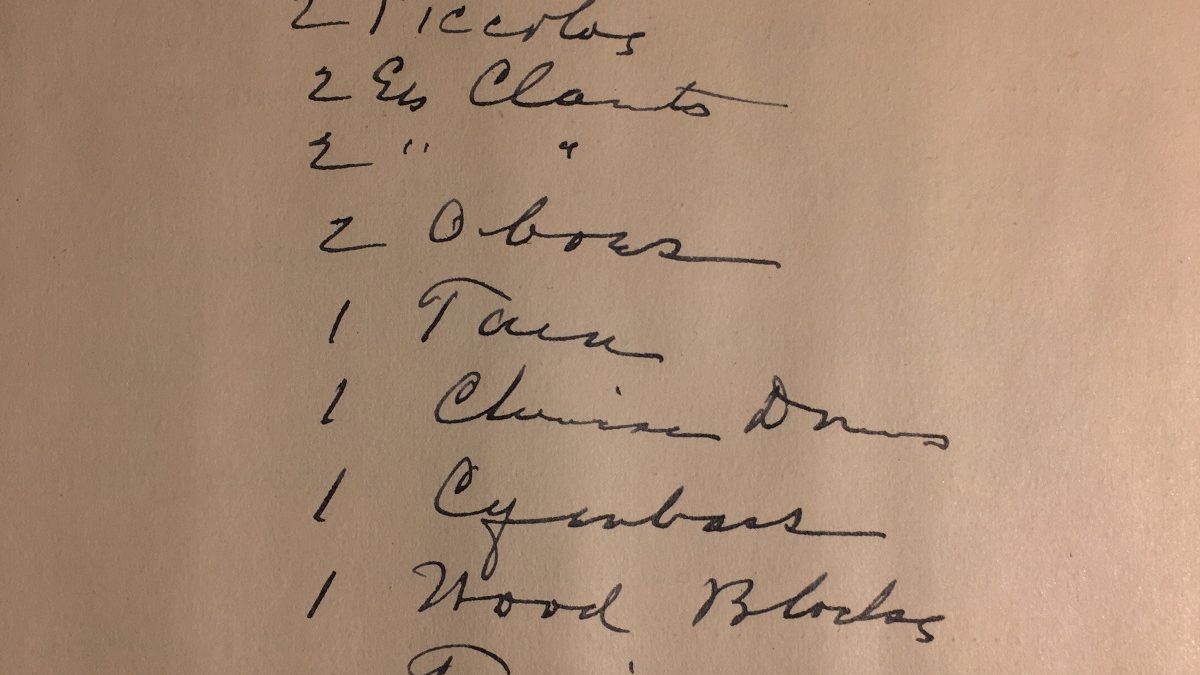 2 Piccolos
2 Eb Clarnts
2 " "
2 Oboes
1
1 Chinese Drums
1 Cymbals
1 Wood Blocks